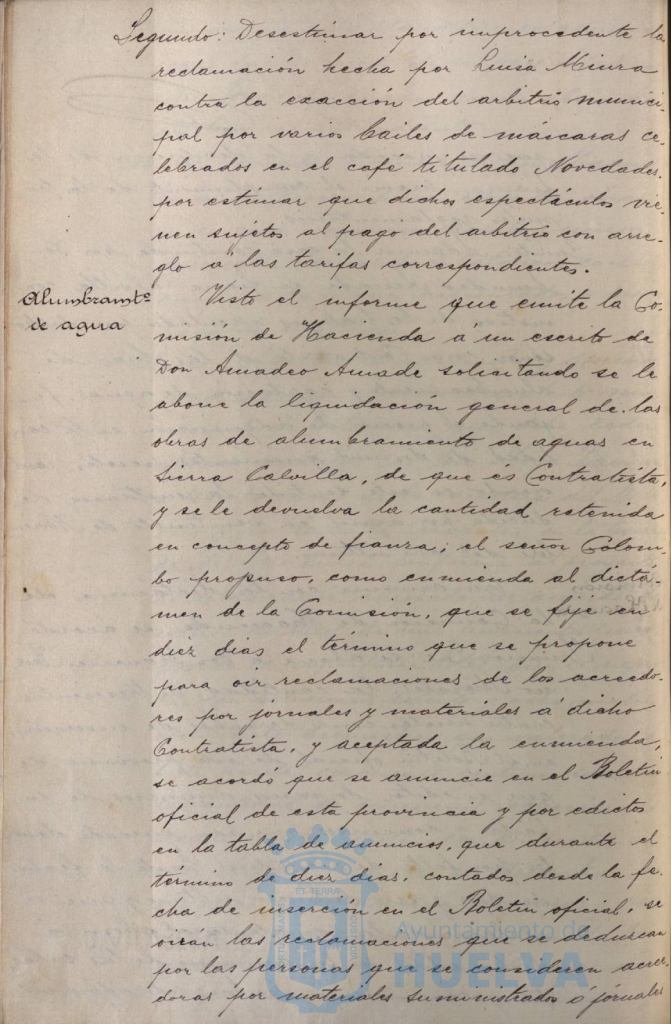 Segundo: Desestimar por improcedente la
reclamación hecha por Luisa Miura
contra la exacción del arbitrio munici-
pal por varios bailes de máscaras ce-
lebrados en el café titulado Novedades,
por estimar que dichos espectáculos vie-
nen sujetos al pago del arbitrio con arre-
glo á las tarifas correspondientes.
Alumbramto
de agua
Visto el informe que emite la Co-
misión de Hacienda á un escrito de
Don Amadeo Amade solicitando se le
abone la liquidación general de las
obras de alumbramiento de aguas en
Sierra Calvilla, de que és Contratista,
y se le devuelva la cantidad retenida
en concepto de fianza; el señor Colom-
bo propuso, como enmienda al dictá-
men de la Comisión, que se fije en
diez dias el término que se propone
para oir reclamaciones de los acreedo-
res por jornales y materiales á dicho
Contratista, y aceptada la enmienda,
se acordó que se anuncie en el Boletin
oficial de esta provincia y por edictos
en la tabla de anuncios, que durante el
término de diez dias, contados desde la fe-
cha de inserción en el Boletin oficial, se
oirán las reclamaciones que se deduzcan
por las personas que se consideren acree-
doras por materiales suministrados ó jornales
Ayuntamiento de
HUELVA